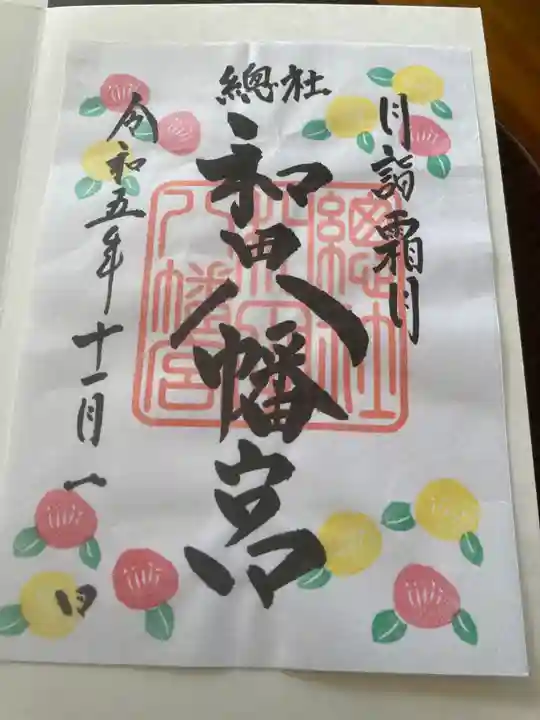 月詣霜月
總社
和田八幡宮
總社
和田
八幡宮
令和五年十一月一日